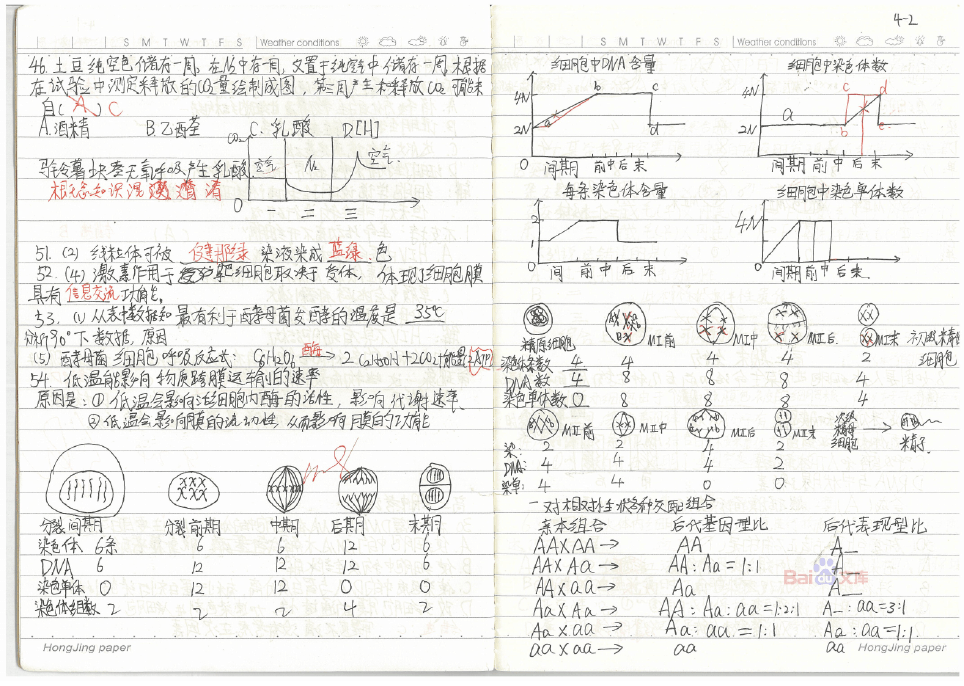 4-2
S M T W T F S Weather conditions
46.土豆纯空包储存一周,在N₂中存一周,又置于纯空中储存一周,根据
在试验中测定释放的CO₂量绘制成图,第三周产生未释放CO₂可能来
自(A)C
A.酒精 B.乙醛 C.乳酸 D.[H]
CO₂ 空气 N₂ 空气
马铃薯块茎无氧呼吸产生乳酸
概念知识混淆 清
0 一 二 三
51.(2) 线粒体可被 健那绿 染液染成 蓝绿 色
52.(4) 激素作用于靶细胞取决于受体,体现了细胞膜
具有信息交流功能。
53.(1)从表中数据知最有利于酵母菌发酵的温度是 35℃
分析30°下数据,原因
(5) 酵母菌细胞呼吸反应式:C₆H₁₂O₆ 酶→ 2C₂H₅OH+2CO₂+能量
54. 低温能影响物质跨膜运输的速率
原因是:①低温会影响活细胞内酶的活性,影响代谢速率.
②低温会影响膜的流动性,从而影响膜的功能
分裂间期 分裂前期 中期 后期 末期
染色体 6条 6 6 12 6
DNA 6 12 12 12 6
染色单体 0 12 12 0 0
染色体组数 2 2 2 4 2
HongJing paper
S M T W T F S Weather conditions
细胞中DNA含量 细胞中染色体数
4N 2N 0 a b c d
间期 前中后末
4N 2N 0 a b c d e
间期 前 中 后 末
每条染色体含量 细胞中染色单体数
2 1 0
间 前中后末
4N 0
间期前中后末
精原细胞 MⅠ前 MⅠ中 MⅠ后 MⅠ末 次级精母细胞
染色体条数 4 4 4 4 2
DNA数 4 8 8 8 4
染色单体数 0 8 8 8 4
MⅡ前 MⅡ中 MⅡ后 MⅡ末 细胞 → 精子
染: 2 2 4 2
DNA: 4 4 4 2
染单: 4 4 0 0
一对相对性状的6种交配组合
亲本组合 后代基因型比 后代表现型比
AA×AA→ AA A_
AA×Aa→ AA:Aa=1:1 A_
AA×aa→ Aa A_
Aa×Aa→ AA:Aa:aa=1:2:1 A_:aa=3:1
Aa×aa→ Aa:aa=1:1 Aa:aa=1:1
aa×aa→ aa aa
Baidu文库
HongJing paper